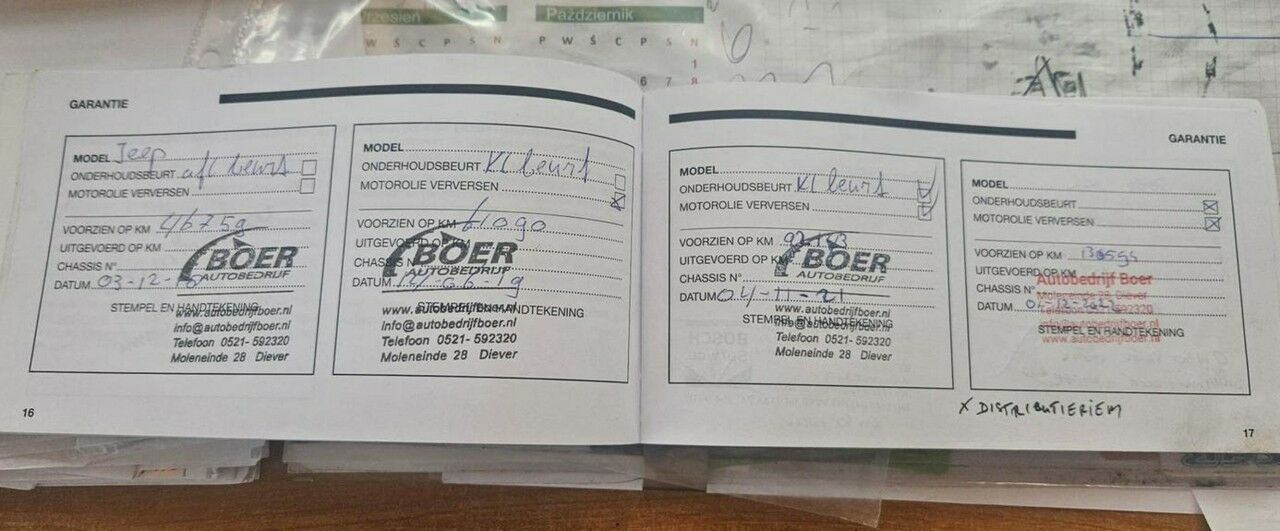 Październik
W Ś C P S N
P W Ś C P S N
1
6 7 8
GARANTIE
MODEL Jeep
ONDERHOUDSBEURT afl beurt
MOTOROLIE VERVERSEN
VOORZIEN OP KM 46759
UITGEVOERD OP KM
CHASSIS N°
DATUM 03-12-18
BOER
AUTOBEDRIJF
STEMPEL EN HANDTEKENING
www.autobedrijfboer.nl
info@autobedrijfboer.nl
Telefoon 0521-592320
Moleneinde 28 Diever
16
MODEL
ONDERHOUDSBEURT Kl beurt
MOTOROLIE VERVERSEN
VOORZIEN OP KM 61090
UITGEVOERD OP KM
CHASSIS N°
DATUM 06-19
BOER
AUTOBEDRIJF
STEMPEL EN HANDTEKENING
www.autobedrijfboer.nl
info@autobedrijfboer.nl
Telefoon 0521-592320
Moleneinde 28 Diever
GARANTIE
MODEL
ONDERHOUDSBEURT Kl beurt
MOTOROLIE VERVERSEN
VOORZIEN OP KM
UITGEVOERD OP KM
CHASSIS N°
DATUM 04-11-21
BOER
AUTOBEDRIJF
STEMPEL EN HANDTEKENING
www.autobedrijfboer.nl
info@autobedrijfboer.nl
Telefoon 0521-592320
Moleneinde 28 Diever
MODEL
ONDERHOUDSBEURT
MOTOROLIE VERVERSEN
VOORZIEN OP KM
UITGEVOERD OP KM
CHASSIS N°
DATUM
Autobedrijf Boer
Moleneinde 28, Diever
STEMPEL EN HANDTEKENING
www.autobedrijfboer.nl
X DISTRIBUTIERIEM
17